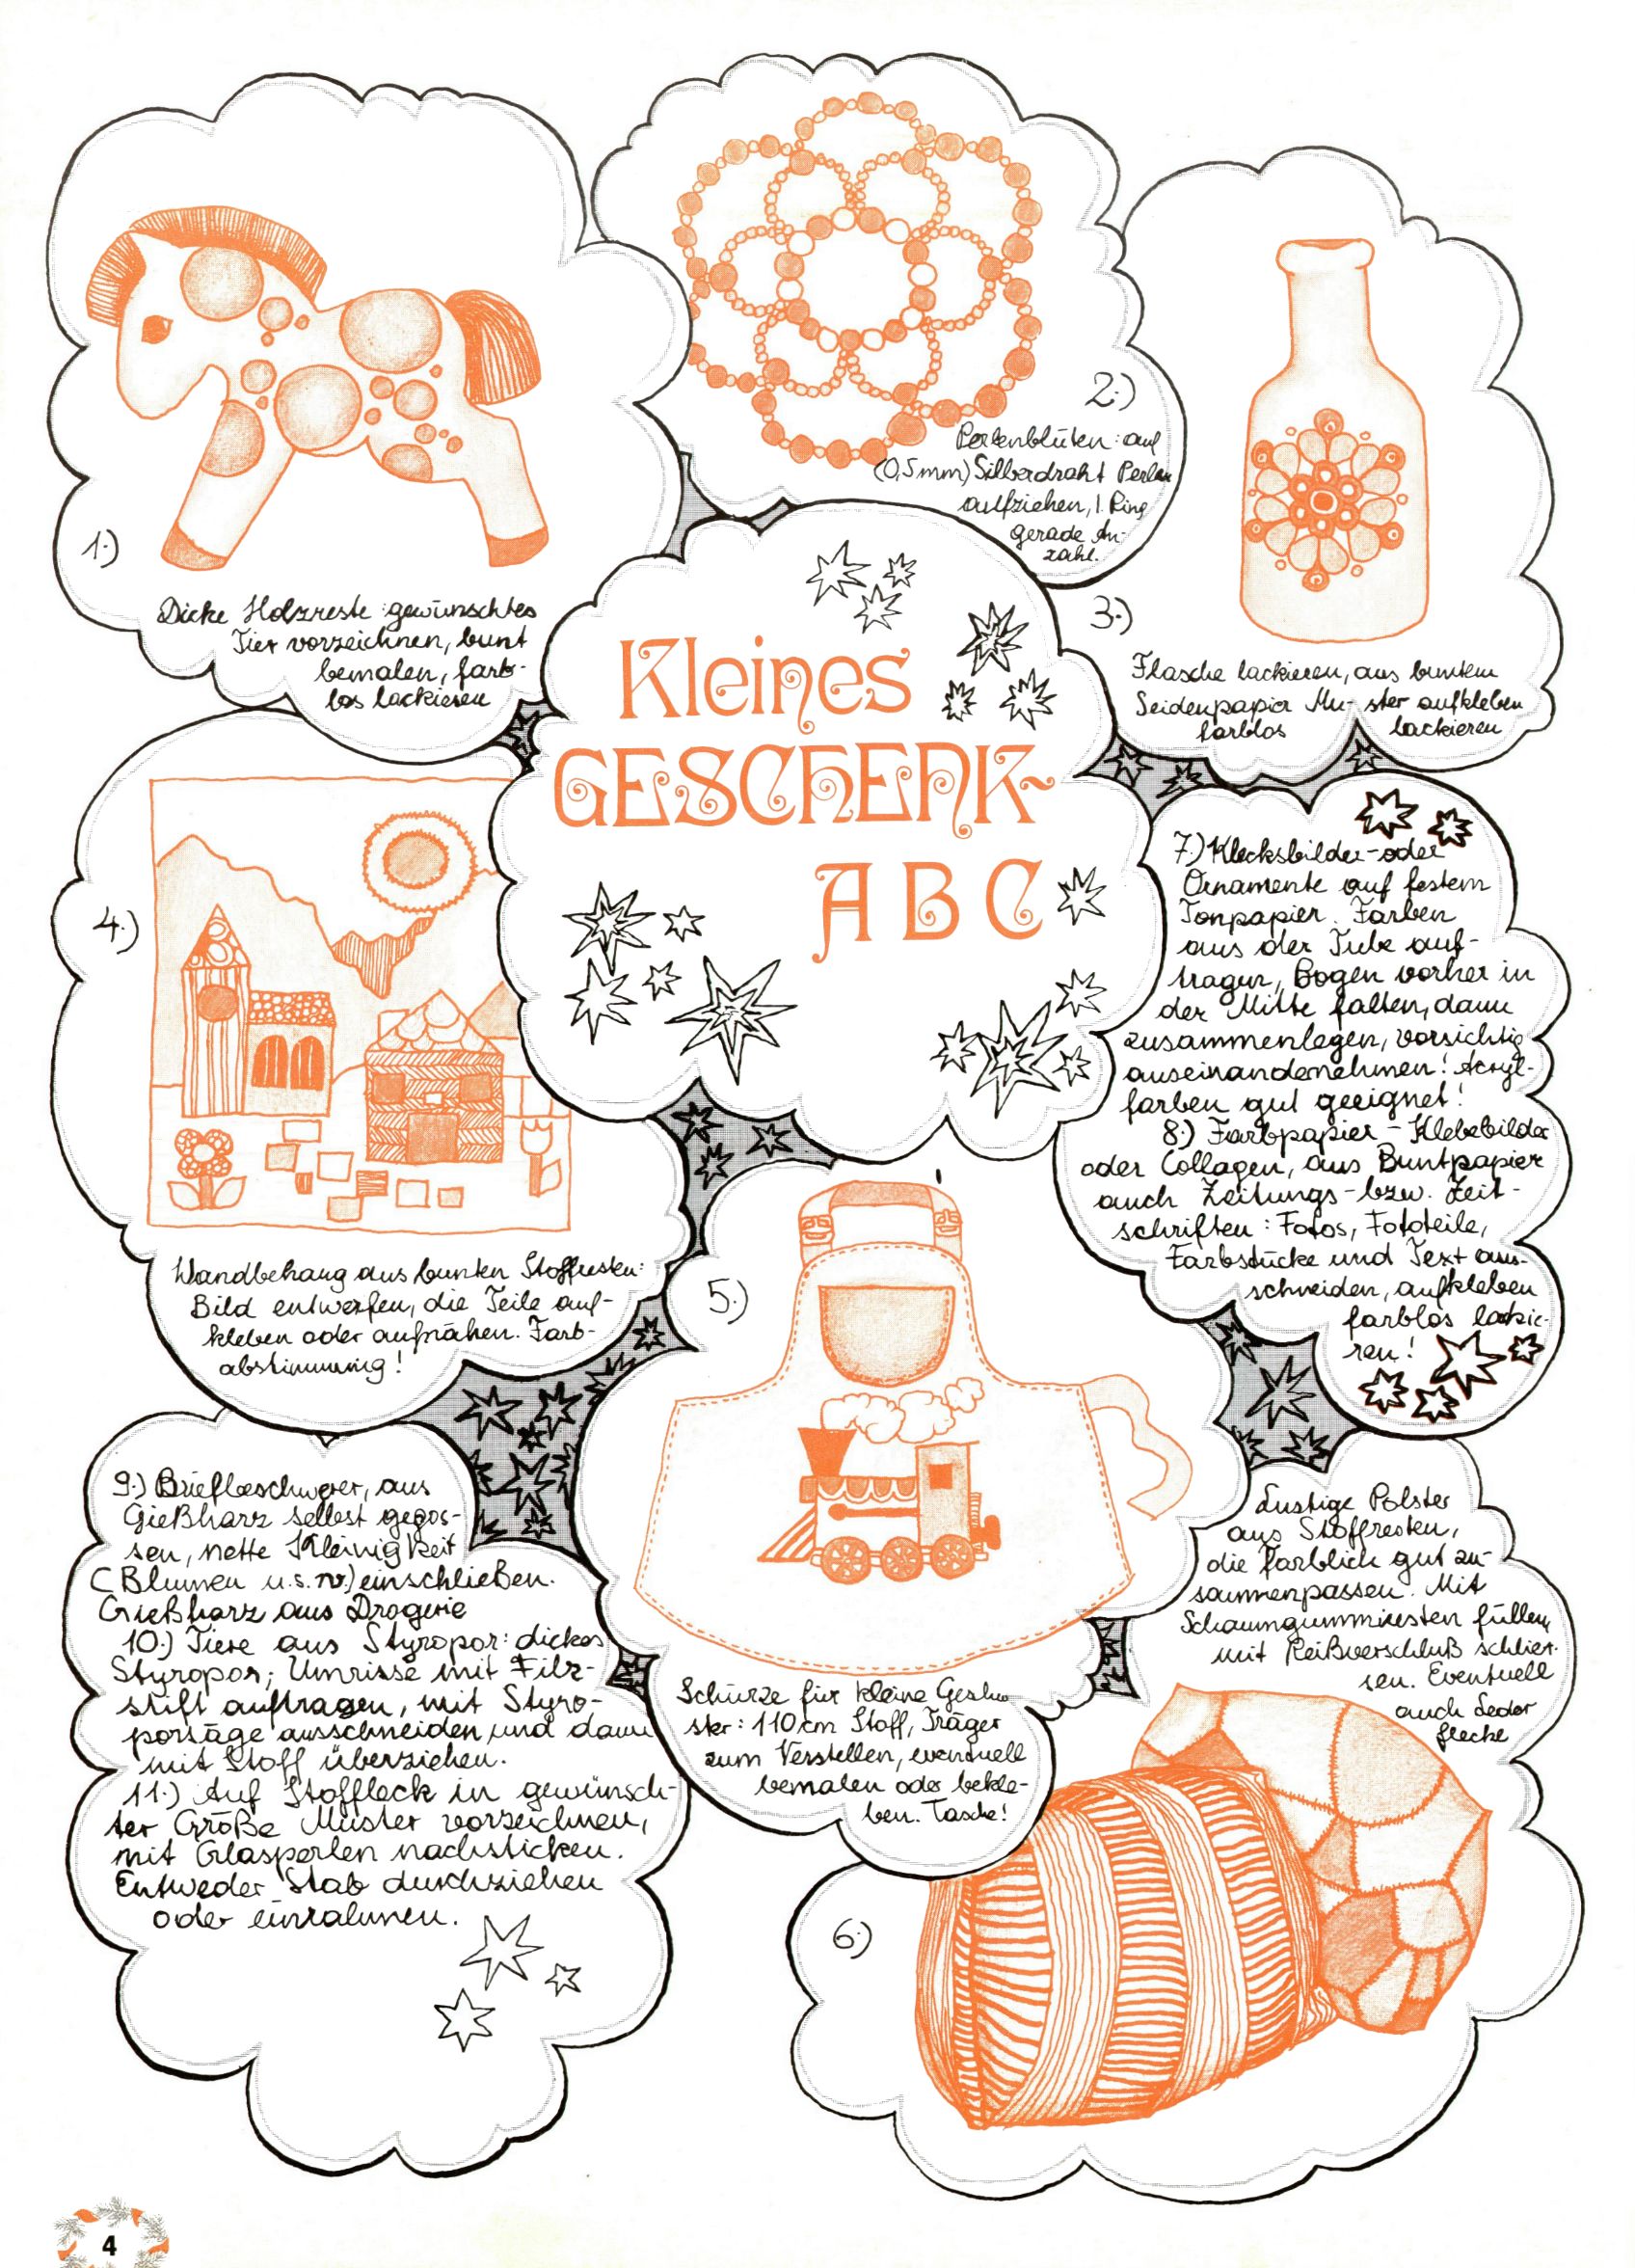 Kleines
GESCHENK-
ABC
1.)
Dicke Holzreste: gewünschtes
Tier vorzeichnen, bunt
bemalen, farb-
los lackieren
2.)
Perlenblüten: auf
(0,5mm) Silberdraht Perlen
auffziehen, 1. Ring
gerade An-
zahl.
3.)
Flasche lackieren, aus buntem
Seidenpapier Mu- ster aufkleben
farblos lackieren
4.)
Wandbehang aus bunten Stoffresten:
Bild entwerfen, die Teile auf-
kleben oder aufnähen. Farb-
abstimmung!
5.)
Schürze für kleine
ster: 110 cm Stoff, Träger
zum Verstellen, eventuell
bemalen oder bekle-
ben. Tasche!
Lustige Polster
aus Stoffresten,
die farblich gut zu-
sammenpassen. Mit
Schaumgummiresten füllen,
mit Reißverschluß schlies-
sen. Eventuell
auch Leder
flecke
6.)
7.) Klecksbilder-oder
Ornamente auf festem
Tonpapier. Farben
aus der Tube auf-
tragen, Bogen vorher in
der Mitte falten, dann
zusammenlegen, vorsichtig
auseinandernehmen! Acryl-
farben gut geeignet!
8.) Farbpapier - Klebebilder
oder Collagen, aus Buntpapier
auch Zeitungs-bzw. Zeit-
schriften: Fotos, Fototeile,
Farbstücke und Text aus-
schneiden, aufkleben
farblos lackie-
ren!
9.) Briefbeschwerer, aus
Gießharz selbst gegos-
sen, nette Kleinigkeit
(Blumen u.s.w.) einschließen.
Gießharz aus Drogerie
10.) Tiere aus Styropor: dickes
Styropor; Umrisse mit Filz-
stift auftragen, mit Styro-
porsäge ausschneiden und dann
mit Stoff überziehen.
11.) Auf Stoffleck in gewünsch-
ter Größe Muster vorzeichnen,
mit Glasperlen nachsticken.
Entweder Stab durchziehen
oder einrahmen.
4